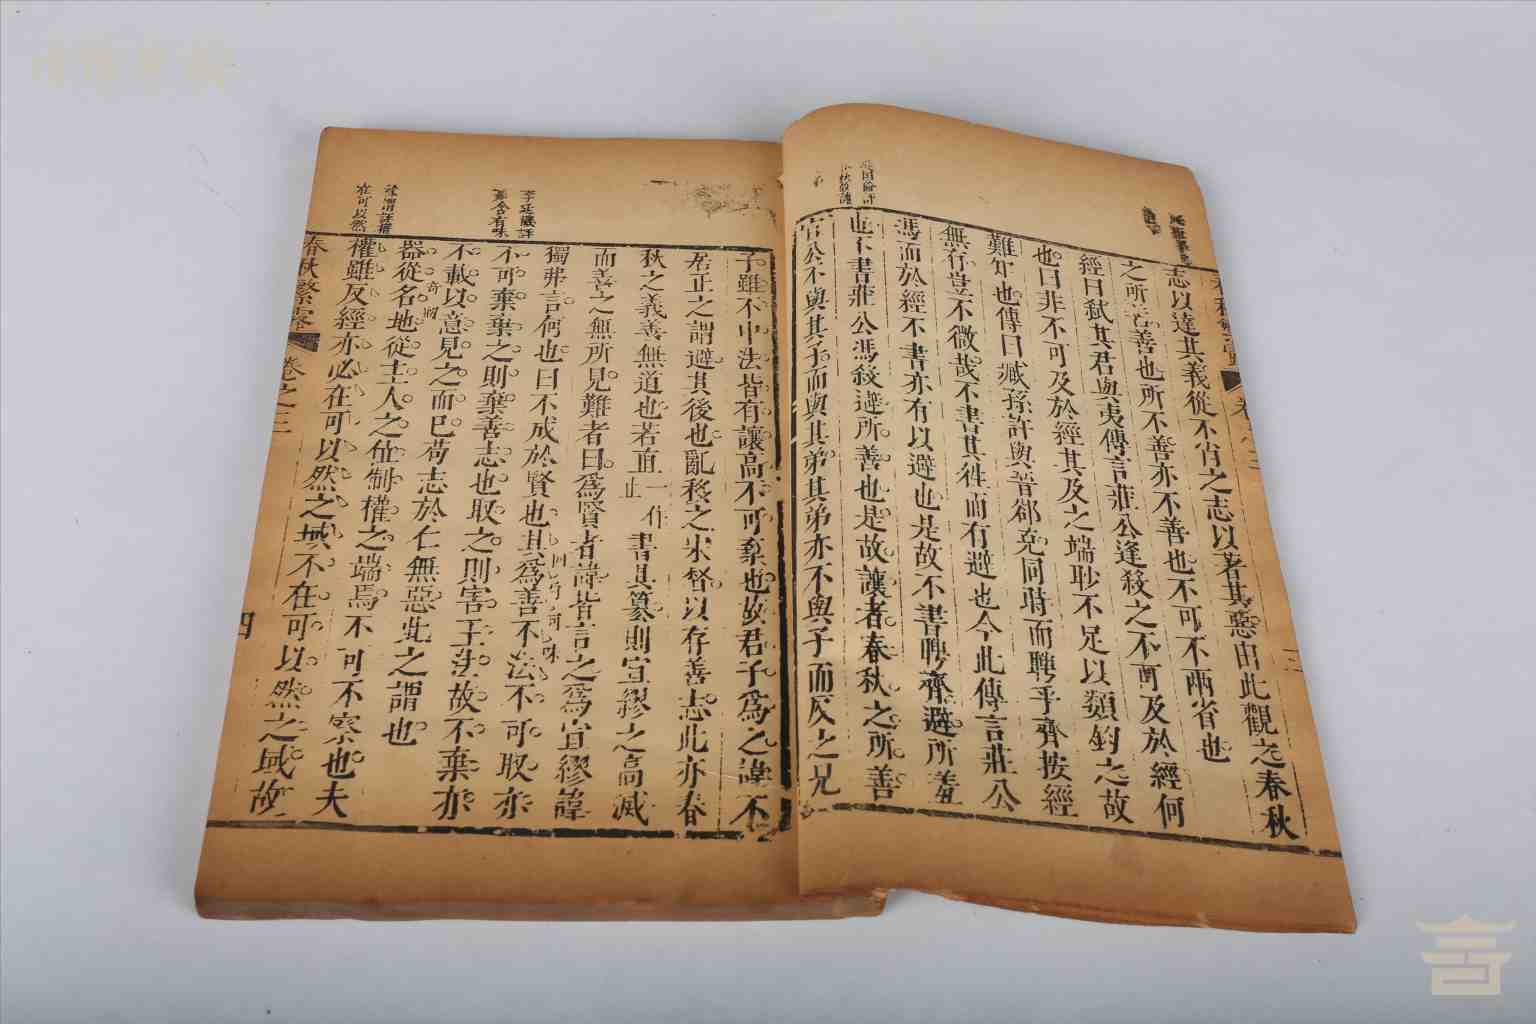 志以達其義從不肖之志以著其惡由此觀之春秋
之所善善也所不善亦不善也不可不兩省也
經曰弒其君與夷傳言莊公逢殺之不可及於經何
也曰非不可及於經其及之端眇不足以類鈞之故
難知也傳曰臧孫許與晉郤克同時而聘乎齊按經
無有豈不微哉不書其往而有避也今此傳言莊公
馮而於經不書亦有以避也是故不書聘齊避所羞
也不書莊公馮殺避所善也是故讓者春秋之所善
宣公不與其子而與其弟其弟亦不與子而反之兄
子雖不中法皆有讓高不可棄也故君子爲之諱不
居正之謂避其後也亂移之宋督以存善志此亦春
秋之義善無道也若直一作止書其篡則宣繆之高滅
而善之無所見難者曰爲賢者諱皆言之爲宣繆諱
獨弗言何也曰不成於賢也其爲善不法不可取亦
不可棄棄之則棄善志也取之則害王法故不棄亦
不載以意見之而已苟志於仁無惡此之謂也
器從名地從主人之謂制權之端焉不可不察也夫
權雖反經亦必在可以然之域不在可以然之域故
春秋繁露
卷之三
四
李廷機評
含有味
在可以然